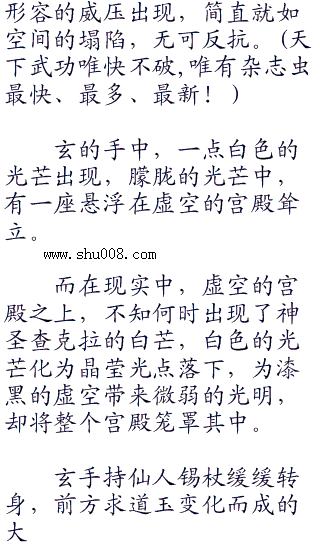 形容的威压出现，简直就如
空间的塌陷，无可反抗。(天
下武功唯快不破,唯有杂志虫
最快、最多、最新！)
玄的手中，一点白色的
光芒出现，朦胧的光芒中，
有一座悬浮在虚空的宫殿耸
立。
www.shu008.com
而在现实中，虚空的宫
殿之上，不知何时出现了神
圣查克拉的白芒，白色的光
芒化为晶莹光点落下，为漆
黑的虚空带来微弱的光明，
却将整个宫殿笼罩其中。
玄手持仙人锡杖缓缓转
身，前方求道玉变化而成的
大